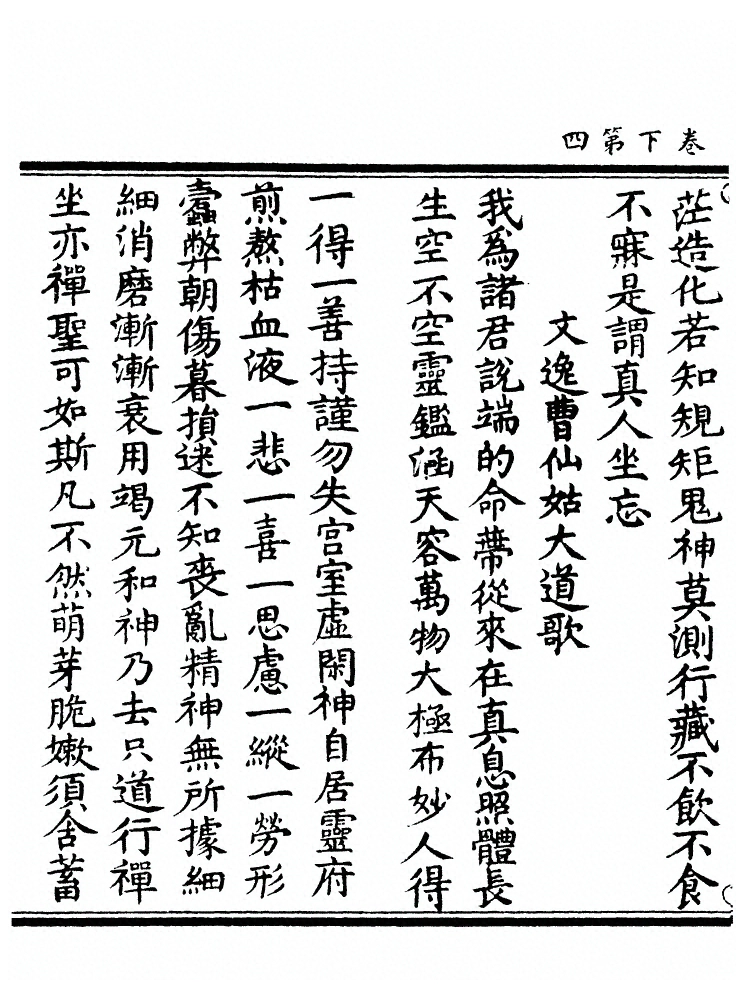 卷下第四
茫造化若知規矩鬼神莫測行藏不飲不食
不寐是謂真人坐忘
文逸曹仙姑大道歌
我為諸君說端的命蔕從來在真息照體長
生空不空靈鑑涵天容萬物大極布妙人得
一得一善持謹勿失宫室虛閑神自居靈府
煎熬枯血液一悲一喜一思慮一縱一勞形
蠹弊朝傷暮損迷不知喪亂精神無所據細
細消磨漸漸衰用竭元和神乃去只道行禪
坐亦禪聖可如斯凡不然萌芽脆嫰須含蓄